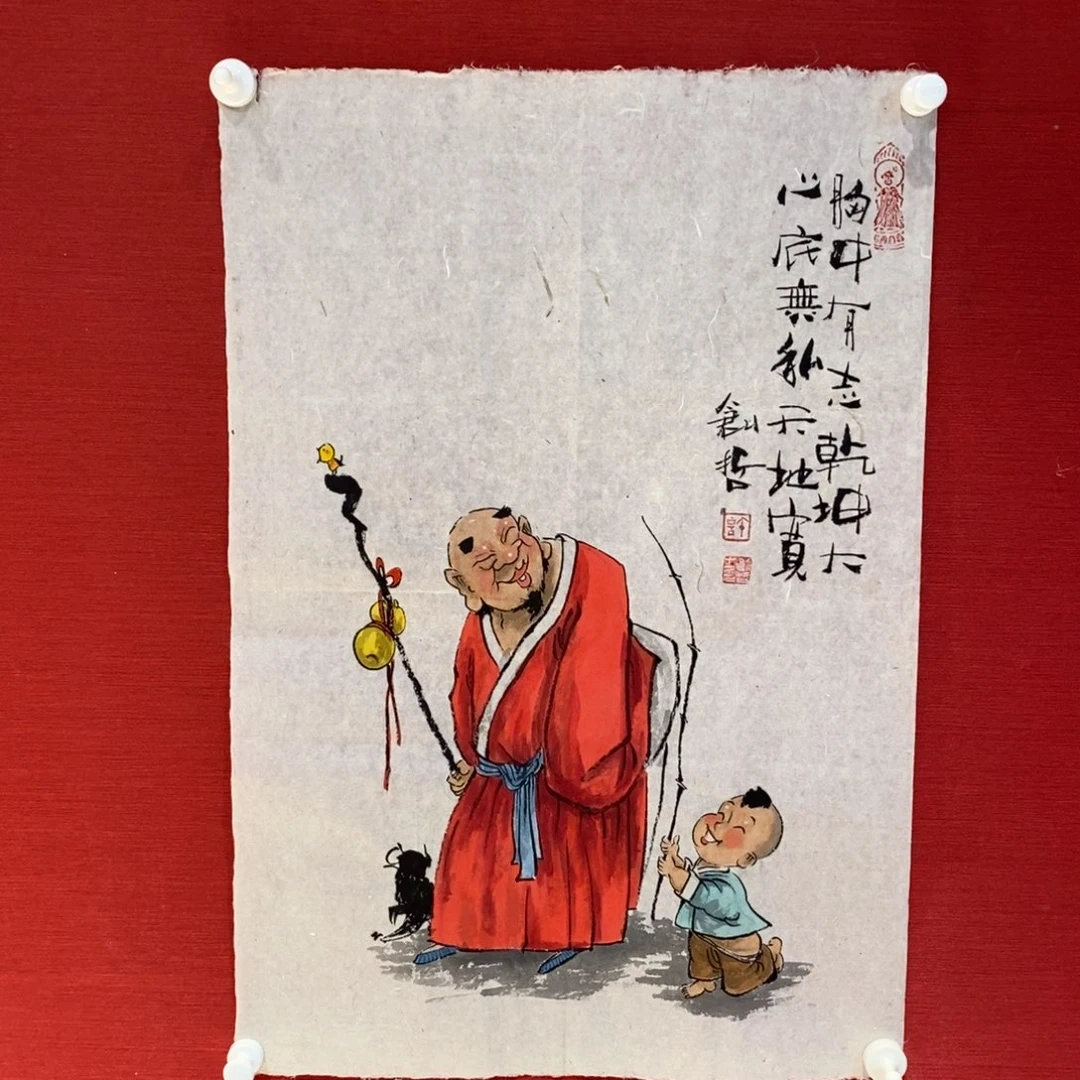 胸中有志乾坤大
心底無私天地寬
創哲